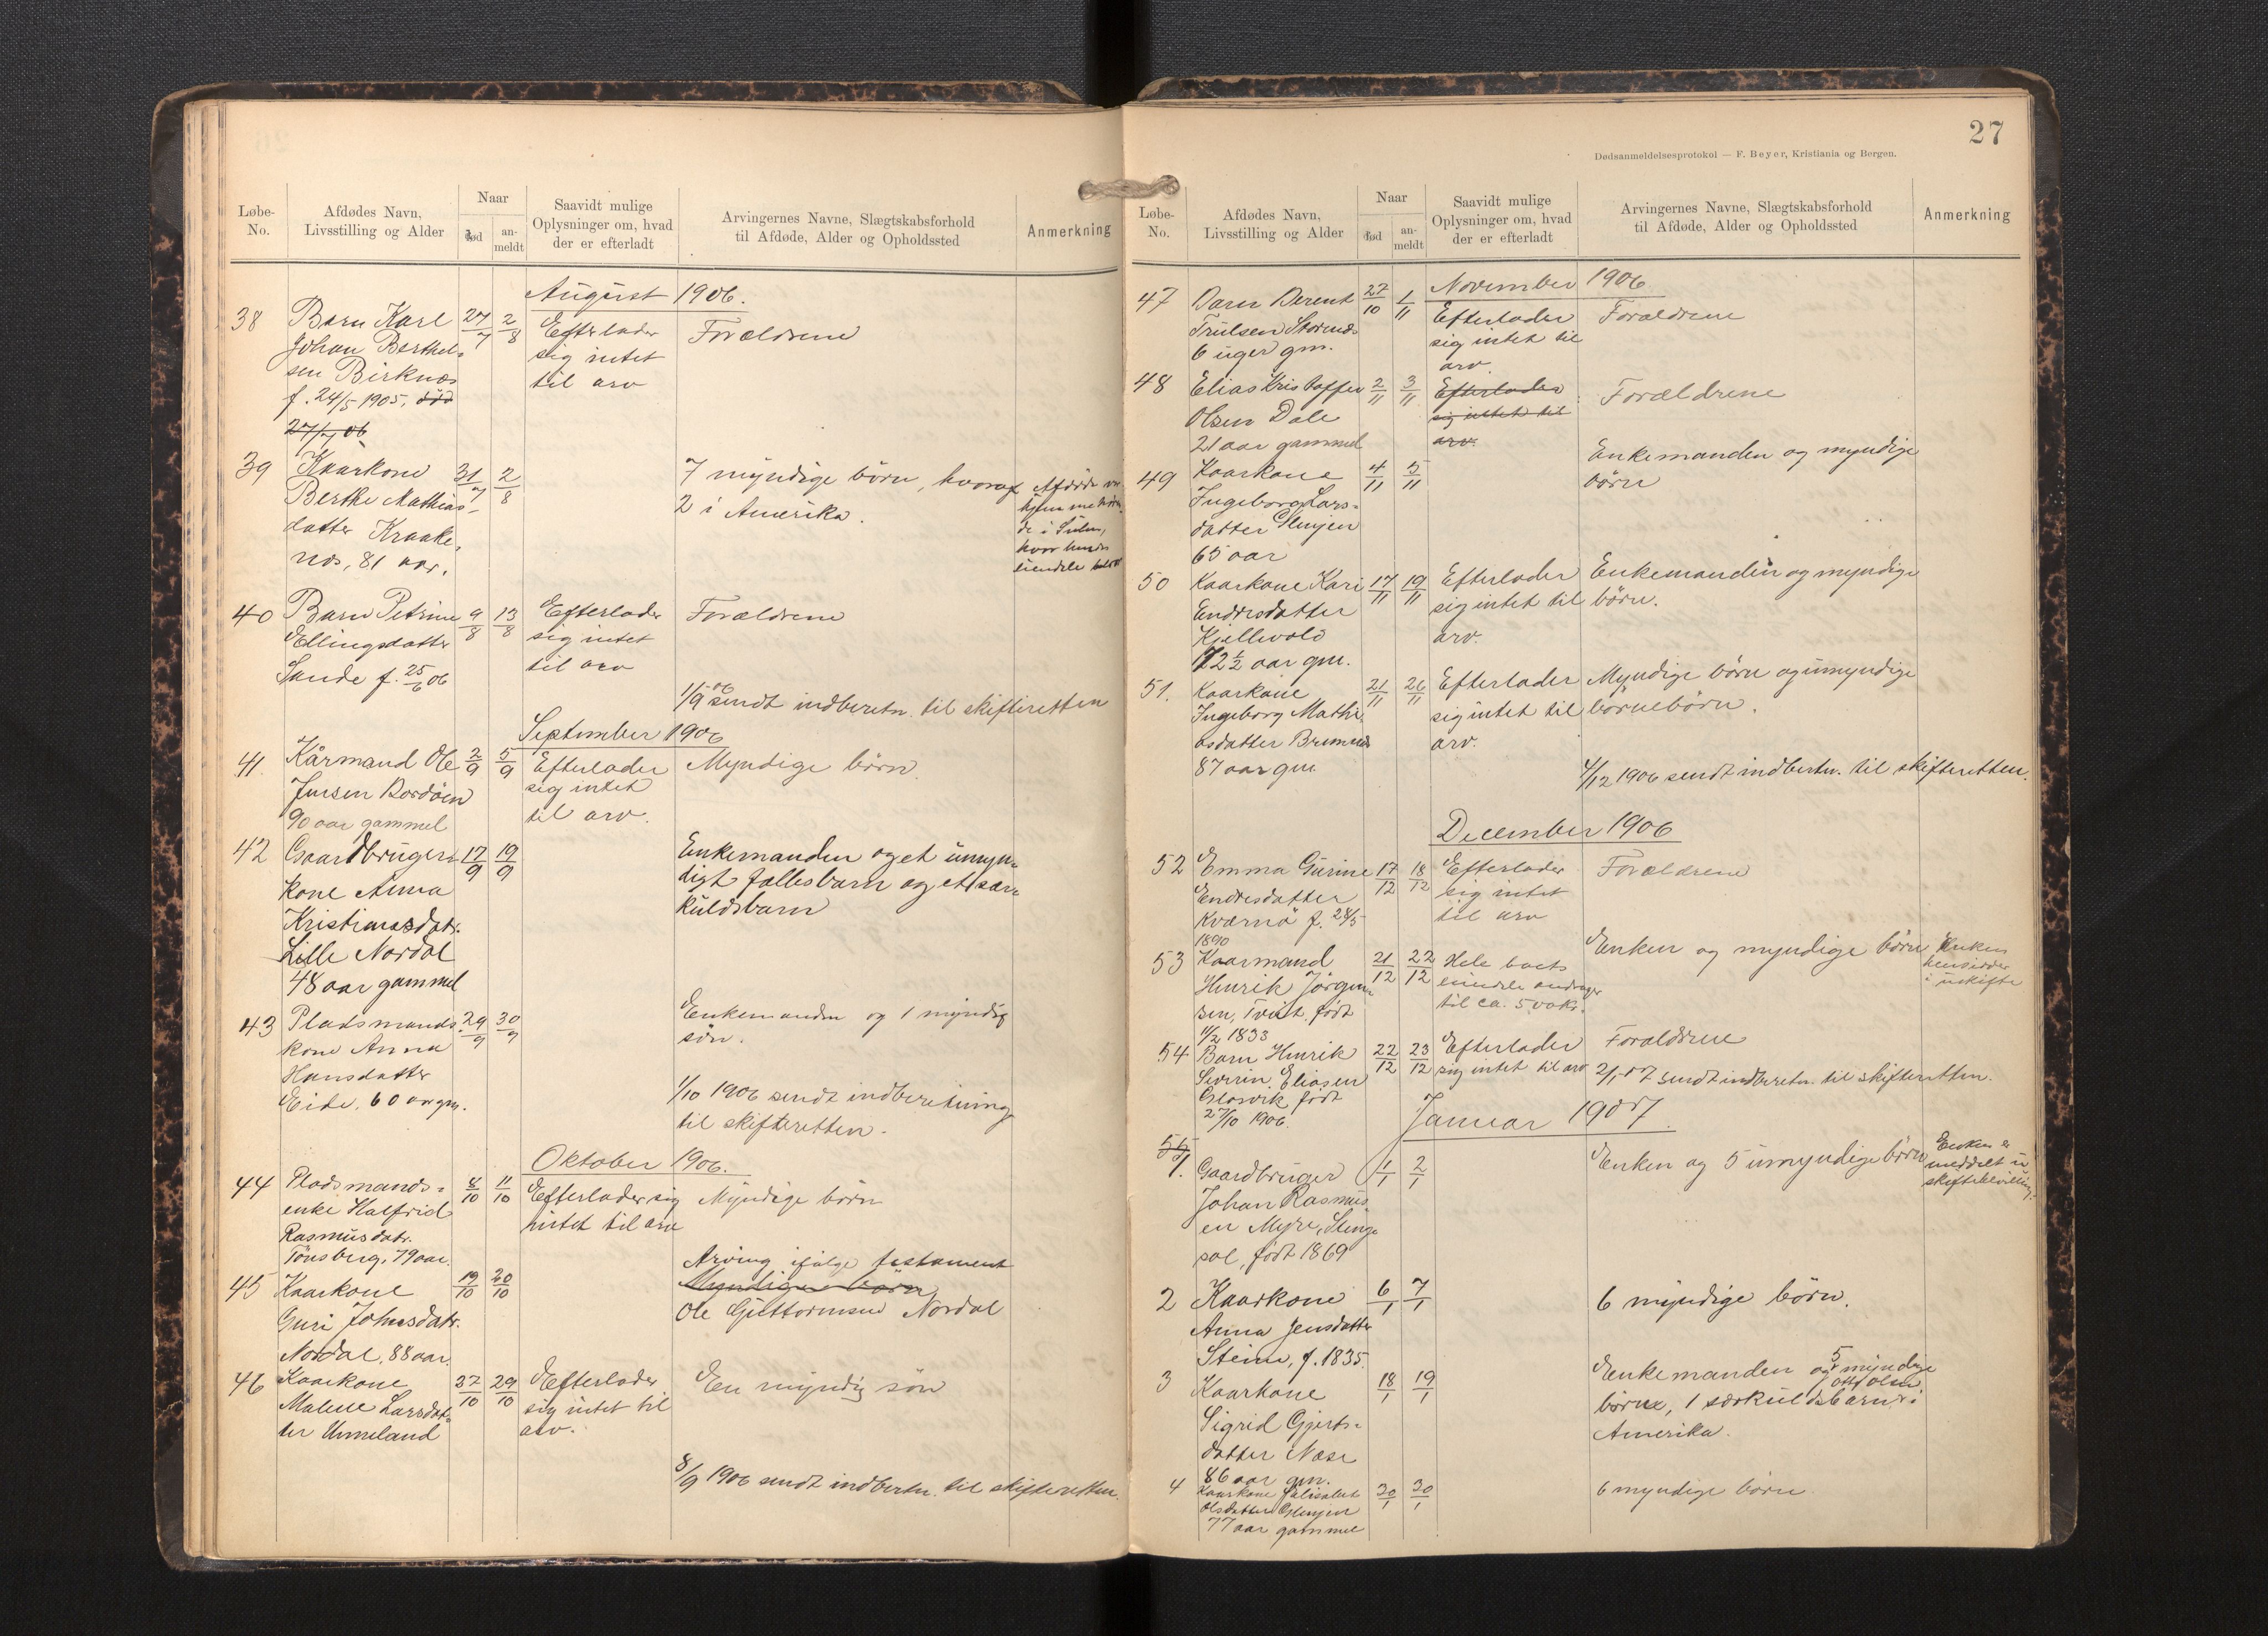 Løbe-No.
Afdødes Navn, Livsstilling og Alder
Naar
død
an-meldt
Saavidt mulige Oplysninger om, hvad der er efterladt
Arvingernes Navne, Slægtskabsforhold til Afdøde, Alder og Opholdssted
Anmerkning
August 1906.
38 Barn Karl 27/7 2/8 Efterlader Forældrene
Johan Berthel- sig intet
sen Birknæs til arv
f. 24/5 1905. død
27/7 06
39 Kaarkone 31/7 2/8 7 myndige börn, hvoraf Afdøde
Berthe Mathias- 2 i Amerika.
datter Kraake-
næs, 81 aar.
40 Barn Petrine 9/8 13/8 Efterlader Forældrene
Ellingsdatter sig intet
Sande f. 25/6 06 til arv
1/9 06 sendt indberetn. til skifteretten
September 1906
41. Kårmand Ole 2/9 5/9 Efterlader Myndige börn.
Jensen Bordöen sig intet
90 aar gammel til arv.
42 Gaardbruger- 17/9 19/9 Enkemanden og et umyn-
kone Anna digt fællesbarn og et sær-
Kristiansdatr. kuldsbarn
Lille Nordal
48 aar gammel
43 Pladsmands- 29/9 30/9 Enkemanden og 1 myndig
kone Anna sön.
Hansdatter
Eide, 60 aar gm.
1/10 1906 sendt indberetning
til skifteretten.
Oktober 1906.
44 Pladsmands- 8/10 11/10 Efterlader sig Myndige börn
enke Halfrid intet til arv
Rasmusdatr.
Tönsberg, 79 aar.
Arving ifölge testament
45 Kaarkone 19/10 20/10 Myndige börn
Guri Johnsdatr. Ole Guttormsen Nordal
Nordal, 88 aar.
46 Kaarkone 27/10 29/10 Efterlader En myndig sön
Malene Larsdat- sig intet til
ter Unneland arv.
8/9 1906 sendt indbertn. til skifteretten.
27
Dødsanmeldelsesprotokol — F. Beyer, Kristiania og Bergen.
Løbe-No.
Afdødes Navn, Livsstilling og Alder
Naar
død
an-meldt
Saavidt mulige Oplysninger om, hvad der er efterladt
Arvingernes Navne, Slægtskabsforhold til Afdøde, Alder og Opholdssted
Anmerkning
November 1906
47 Barn Berent 27/10 1/11 Efterlader Forældrene
Trulsen Storenæs sig intet til
6 uger gm. arv.
48 Elias Kristoffer 2/11 3/11 Efterlader Forældrene
Olsen Dale sig intet til
21 aar gammel arv.
49 Kaarkone 4/11 5/11 Enkemanden og myndige
Ingeborg Lars- börn
datter
65 aar
50 Kaarkone Kari 17/11 19/11 Efterlader Enkemanden og myndige
Endresdatter sig intet til börn.
Kjellevold arv.
72 1/2 aar gm.
51. Kaarkone 21/11 26/11 Efterlader Myndige börn og umyndige
Ingeborg Mathi- sig intet til börnebörn.
asdatter Bremnes arv.
87 aar gm
4/12 1906 sendt indbertn. til skifteretten.
December 1906
52 Emma Gurine 17/12 18/12 Efterlader Forældrene
Endresdatter sig intet
Kværnö f. 28/5 til arv
1890
53 Kaarmand 21/12 22/12 Hele boets Enken og myndige börn Enken
Henrik Jörgen- eiendele andrager hensidder
sen, Tveit, født til ca. 500 kr. i uskifte
11/2 1833
54 Barn Henrik 22/12 23/12 Efterlader Forældrene
Severin Eliasen sig intet til arv 2/1 07 sendt indberetn. til skifteretten.
født
27/10 1906.
Januar 1907.
55
1. Gaardbruger 1/1 2/1 Enken og 5 umyndige börn Enken er
Johan Rasmus- meddelt u-
en Myre, Stenge- skiftebevilling.
sol, født 1869
2 Kaarkone 6/1 7/1 6 myndige börn.
Anna Jensdatter
Steine, f. 1835.
3 Kaarkone 18/1 19/1 Enkemanden og 5 myndige
Sigrid Gjerts- börn, 1 særkuldsbarn i
datter Nese Amerika.
86 aar gm.
4 Kaarkone 30/1 30/1 6 myndige börn
Olsdatter
77 aar gammel